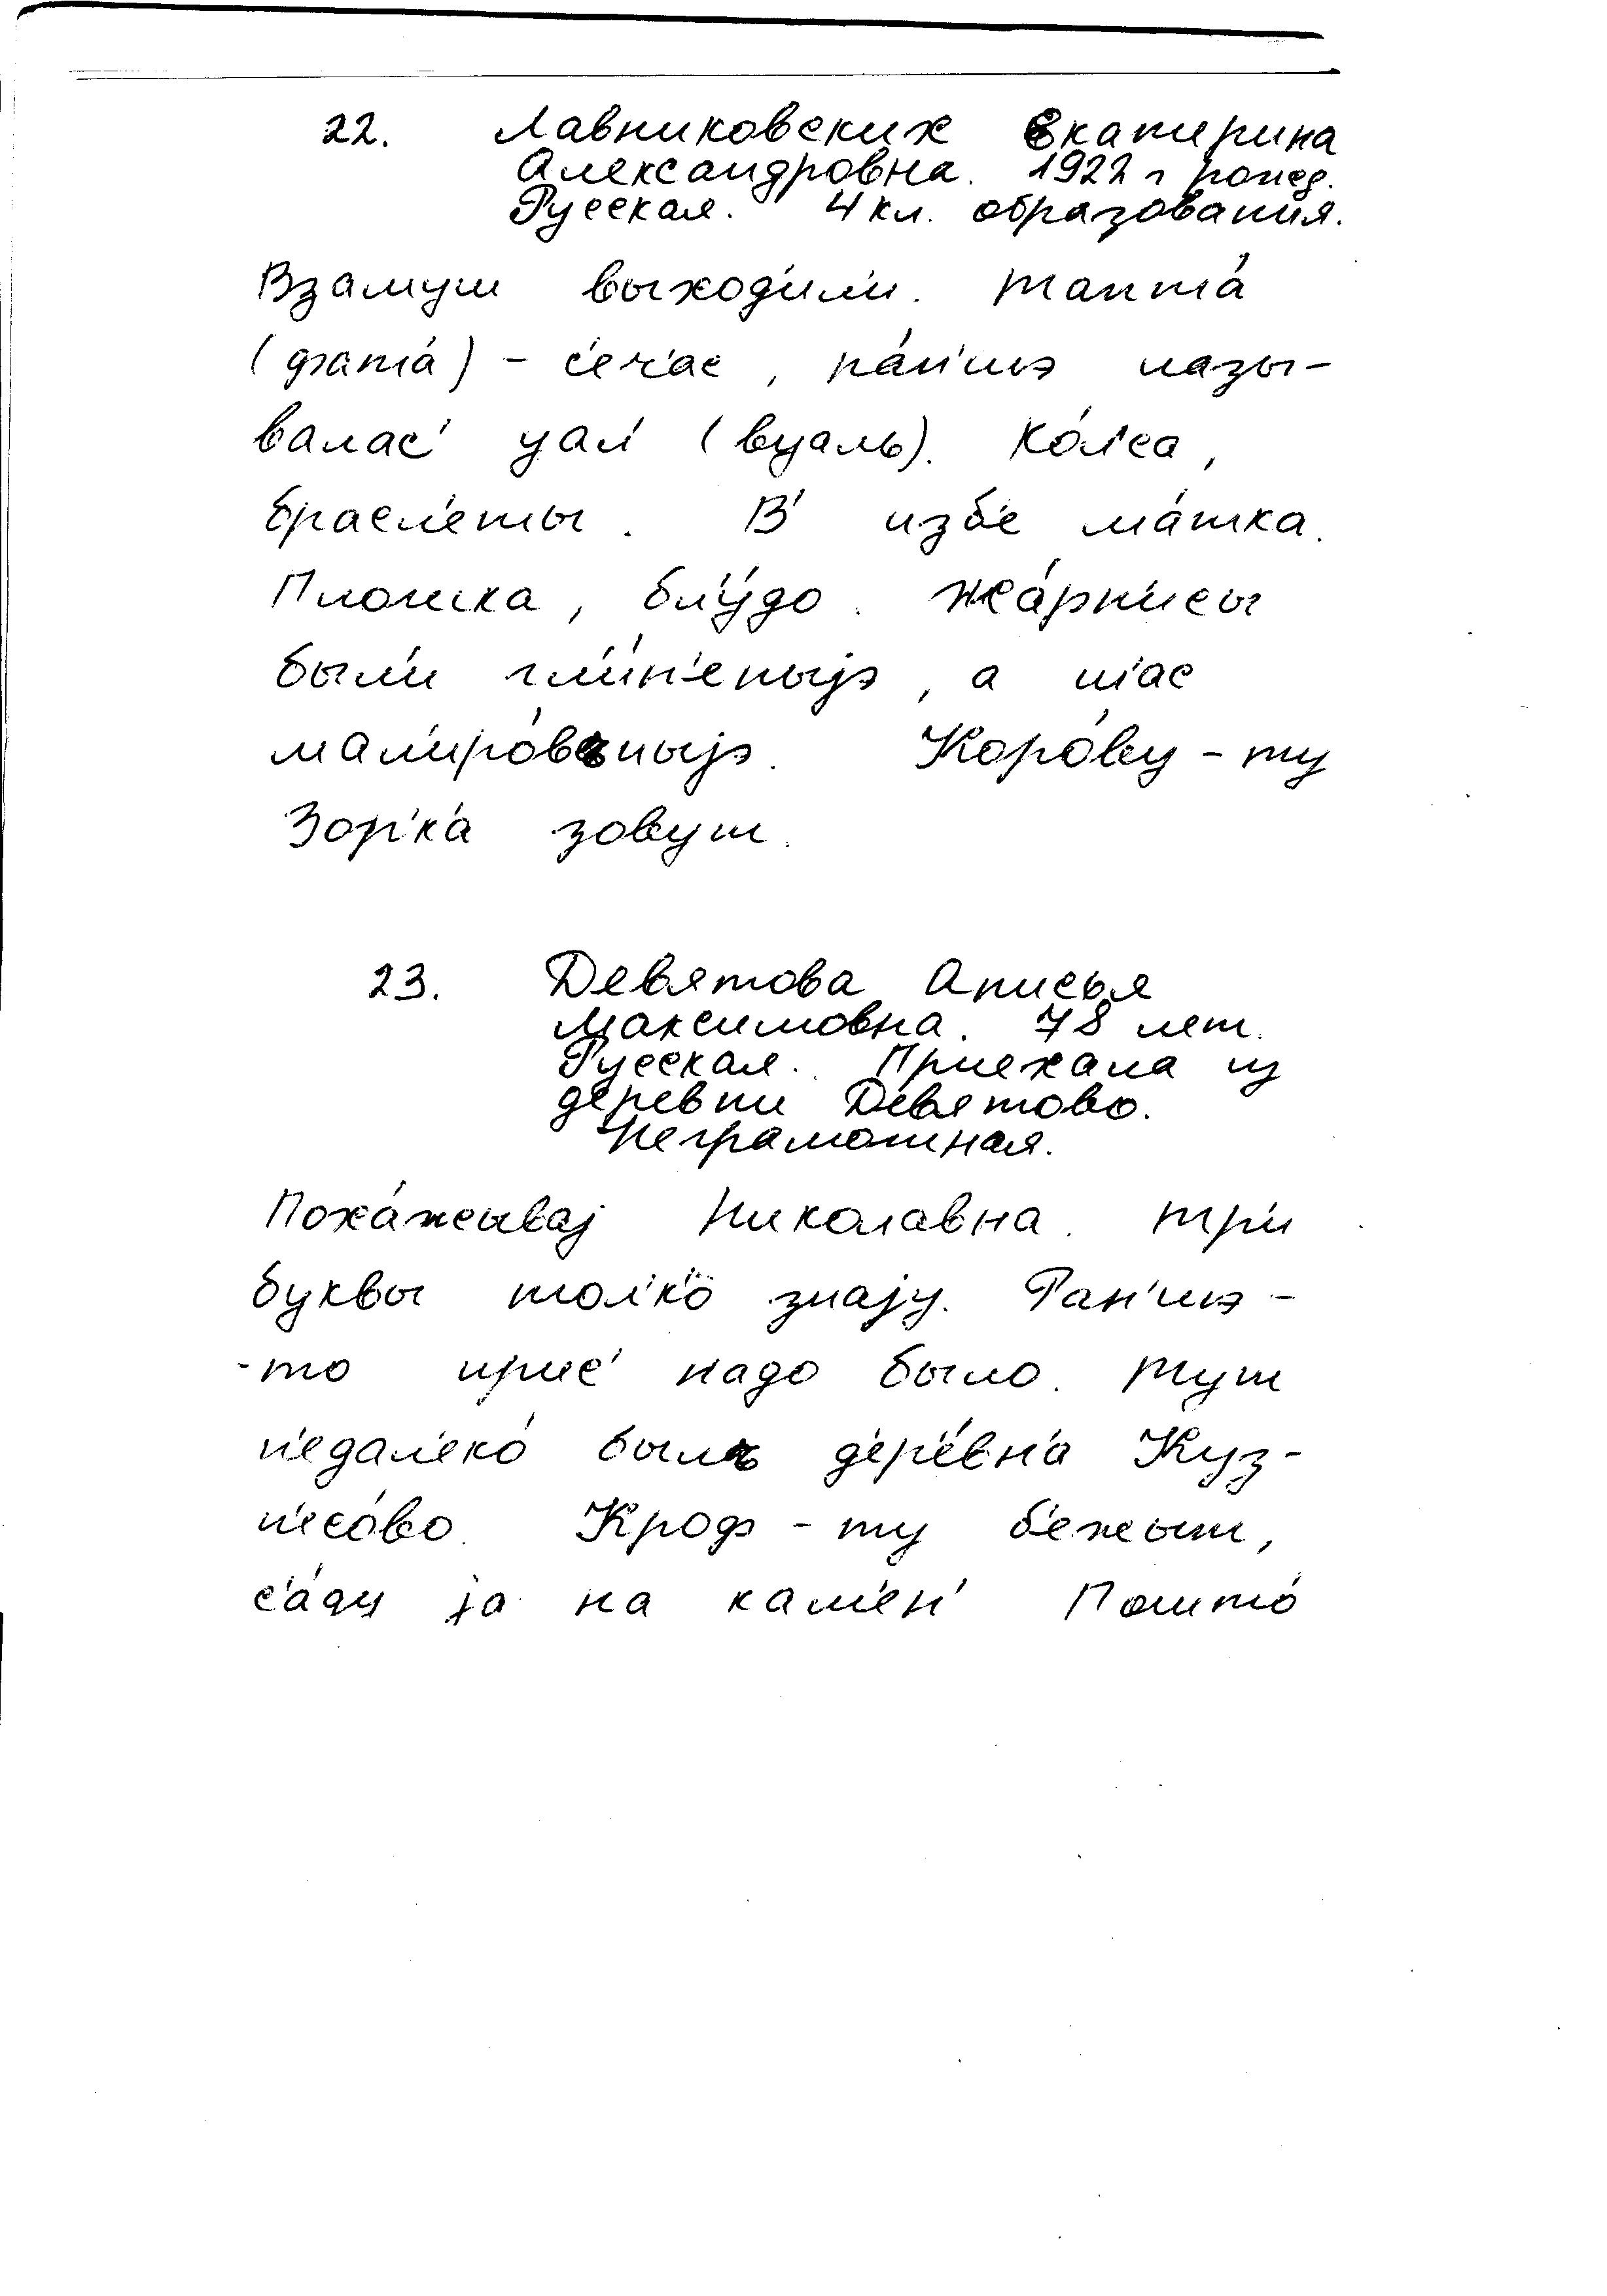 22. Лавниковских Екатерина
Александровна. 1922 г рожд.
Русская. 4 кл. образования.
Взамуш выход'ил'и. Тапта́
(фата́) – с'еч'ас, ра́н'шэ назы-
валас' уал' (вуаль). Ко́л'са,
брасл'еты. В' изб'е ма́тка.
Плошка, бл'у́до. Жа́рн'исы
был'и гл'и́н'еныjэ, а ш'ас
мал'иро́въныjэ. Коро́ву-ту
Зор'к'а зовут.
23. Девятова Анисья
Максимовна. 78 лет.
Русская. Приехала из
деревни Девятово.
Неграмотная.
Поха́жывај Николавна. Тр'и
буквы тол'к'ӧ знају. Ран'шэ-
-то прис' надо было. Тут
н'едал'еко́ былъ д'ер'е́вн'а Куз-
н'ецо́во. Кроф-ту б'ежыт,
с'а́ду jа на кам'ен' Пошто́